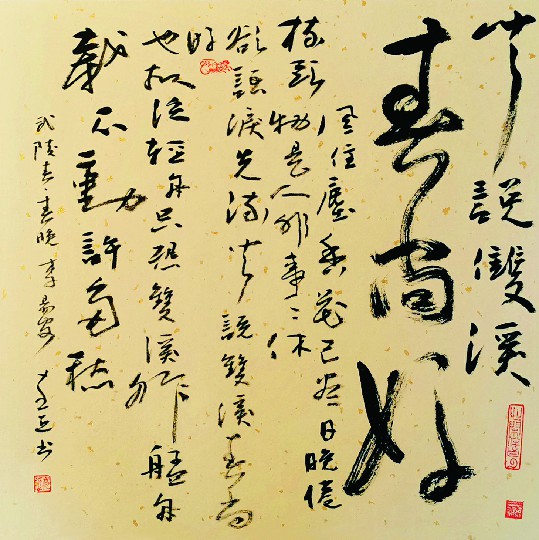 聞説雙溪
春尚好
風住塵香花已盡日晚倦
梳頭物是人非事〻休
欲語淚先流聞説雙溪春尚
好
也擬泛輕舟只恐雙溪舴艋舟
載不動許多愁
武陵春·春晚 李易安
書